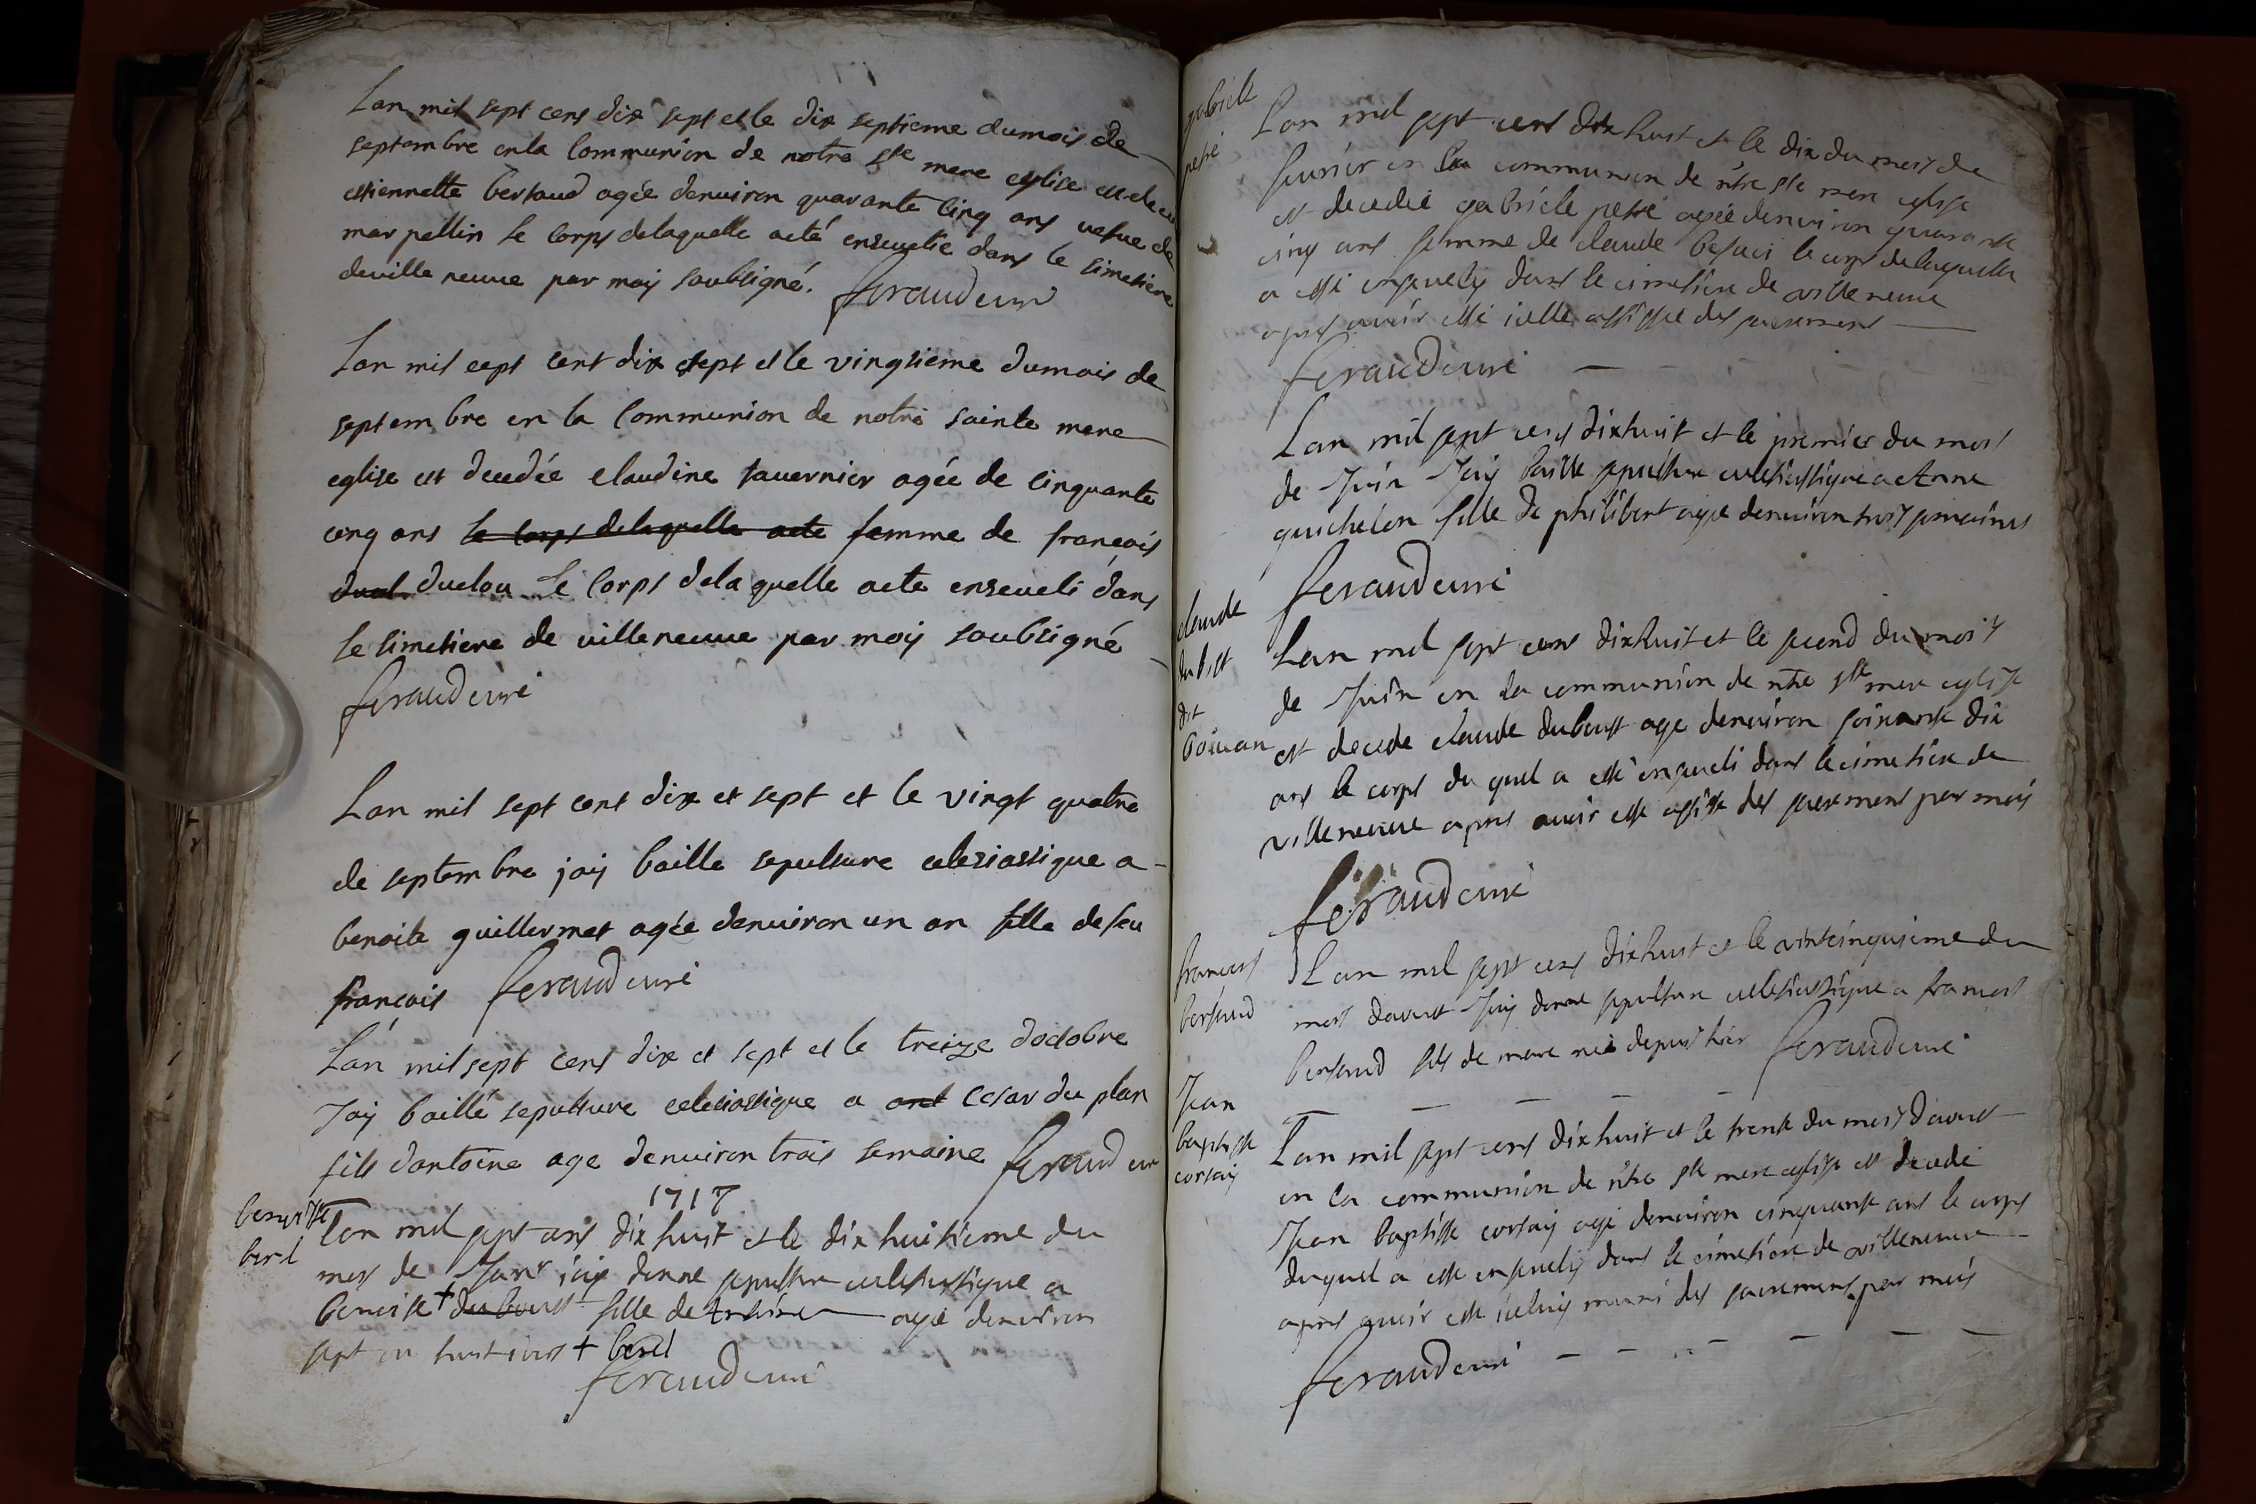 Lan mil sept cens dix sept et le dix septieme dumois de
septembre en la Communion de notre ste mere eglise est decee
estiennette bertaud agée denviron quarante cinq ans vefve de
mar pellin Le Corps delaquelle aeté ensevelie dans le simetiere
deville neuve par moy soubsigné. feraud curé
Lan mil sept cent dix sept et le vingtieme dumois de
septembre en la Communion de notre sainte mere
eglise est decedée claudine tavernier agée de cinquante
cinq ans le corps delaquelle aete femme de francois
duclou Le Corps delaquelle aete enseveli dans
le simetiere de villeneuve par moy soubsigné
feraud curé
Lan mil sept cent dix et sept et le vingt quatre
de septembre jay baille sepulture eclesiastique a
benoite guillermet agée denviron un an fille de feu
francois feraud curé
Lan mil sept cens dix et sept et le treize doctobre
Jay baillé sepulture eclesiastique a ant Cesar du plan
fils dantoine age denviron trois semaine feraud cur
1717
benoiste
berd
Lan mil sept cens dix huit et le dix huitieme du
mois de Janr jay donne sepulture eclesiastique a
benoiste + du boust fille de Antoine agee denviron
sept ou huit jours + berd
feraud curé
gabriele
petié
Lan mil sept cens dix huit et le dix du mois de
fevrier en la communion de ntre ste mere eglise
est decedée gabriele petié agée denviron quarante
cinq ans femme de claude besaci le corps delaquelle
a esté ensevely dans le cimetiere de villeneuve
apres avoir esté icelle assistee des sacremens
feraud curé
Lan mil sept cens dixhuit et le premier du mois
de Juin Jay baille sepulture eclesiastique a Anne
guichelon fille de philibert agee denviron trois semaines
feraud curé
claude
dubost
dit
boiuan
Lan mil sept cens dixhuit et le second du mois
de Juin en la communion de ntre ste mere eglise
est decede claude duboust age denviron soixante dix
ans le corps du quel a esté enseveli dans le cimetiere de
villeneuve apres avoir este assisté des sacremens par moy
feraud curé
francois
bertaud
Lan mil sept cens dixhuit et le vintcinquieme du
mois daoust Jay donne sepulture eclesiastique a francois
bertaud fils de marc né depuis hier feraud curé
Jean
baptiste
cortay
Lan mil sept cens dixhuit et le trente du mois daoust
en la communion de ntre ste mere eglise est decedé
Jean baptiste cortay agé denviron cinquante ans le corps
duquel a este ensevely dans le cimetiere de villeneuve
apres avoir este iceluy muni des sacremens par moy
feraud curé